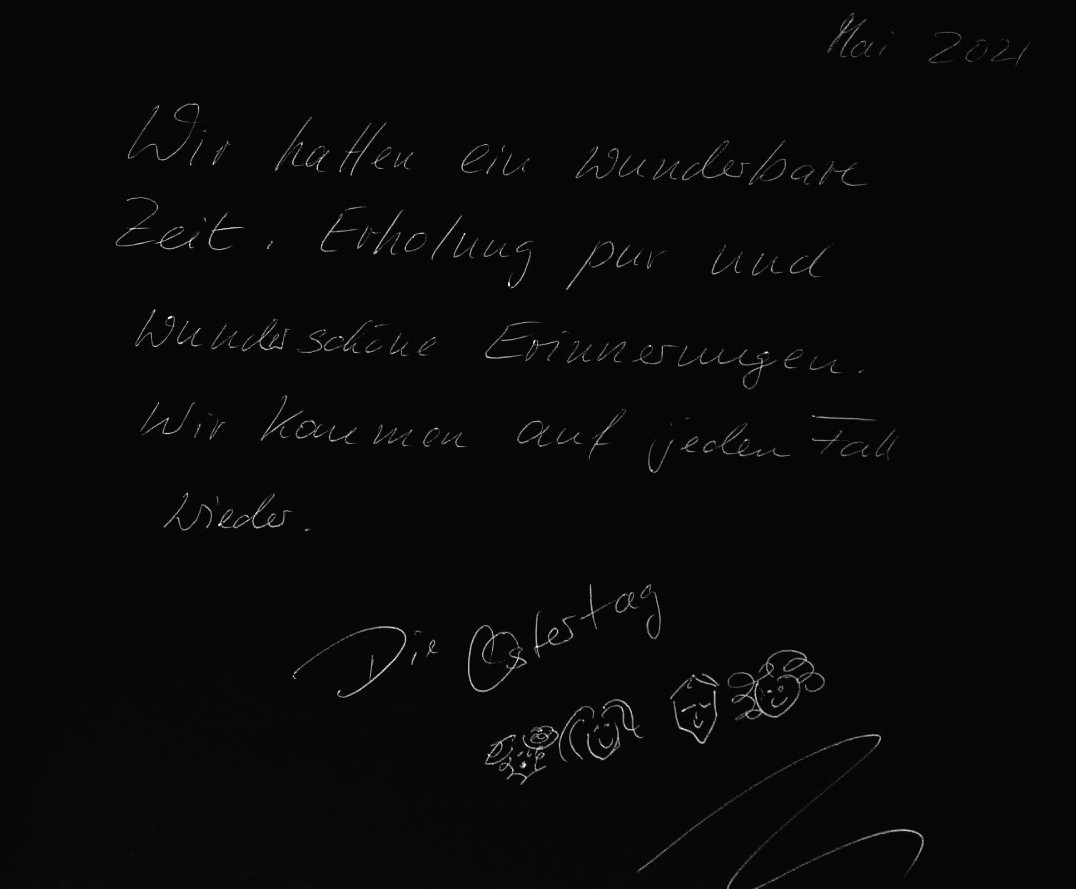 Mai 2021
Wir hatten ein wunderbare
Zeit. Erholung pur und
wunderschöne Erinnerungen.
Wir kommen auf jeden Fall
wieder.
Die Ostertag